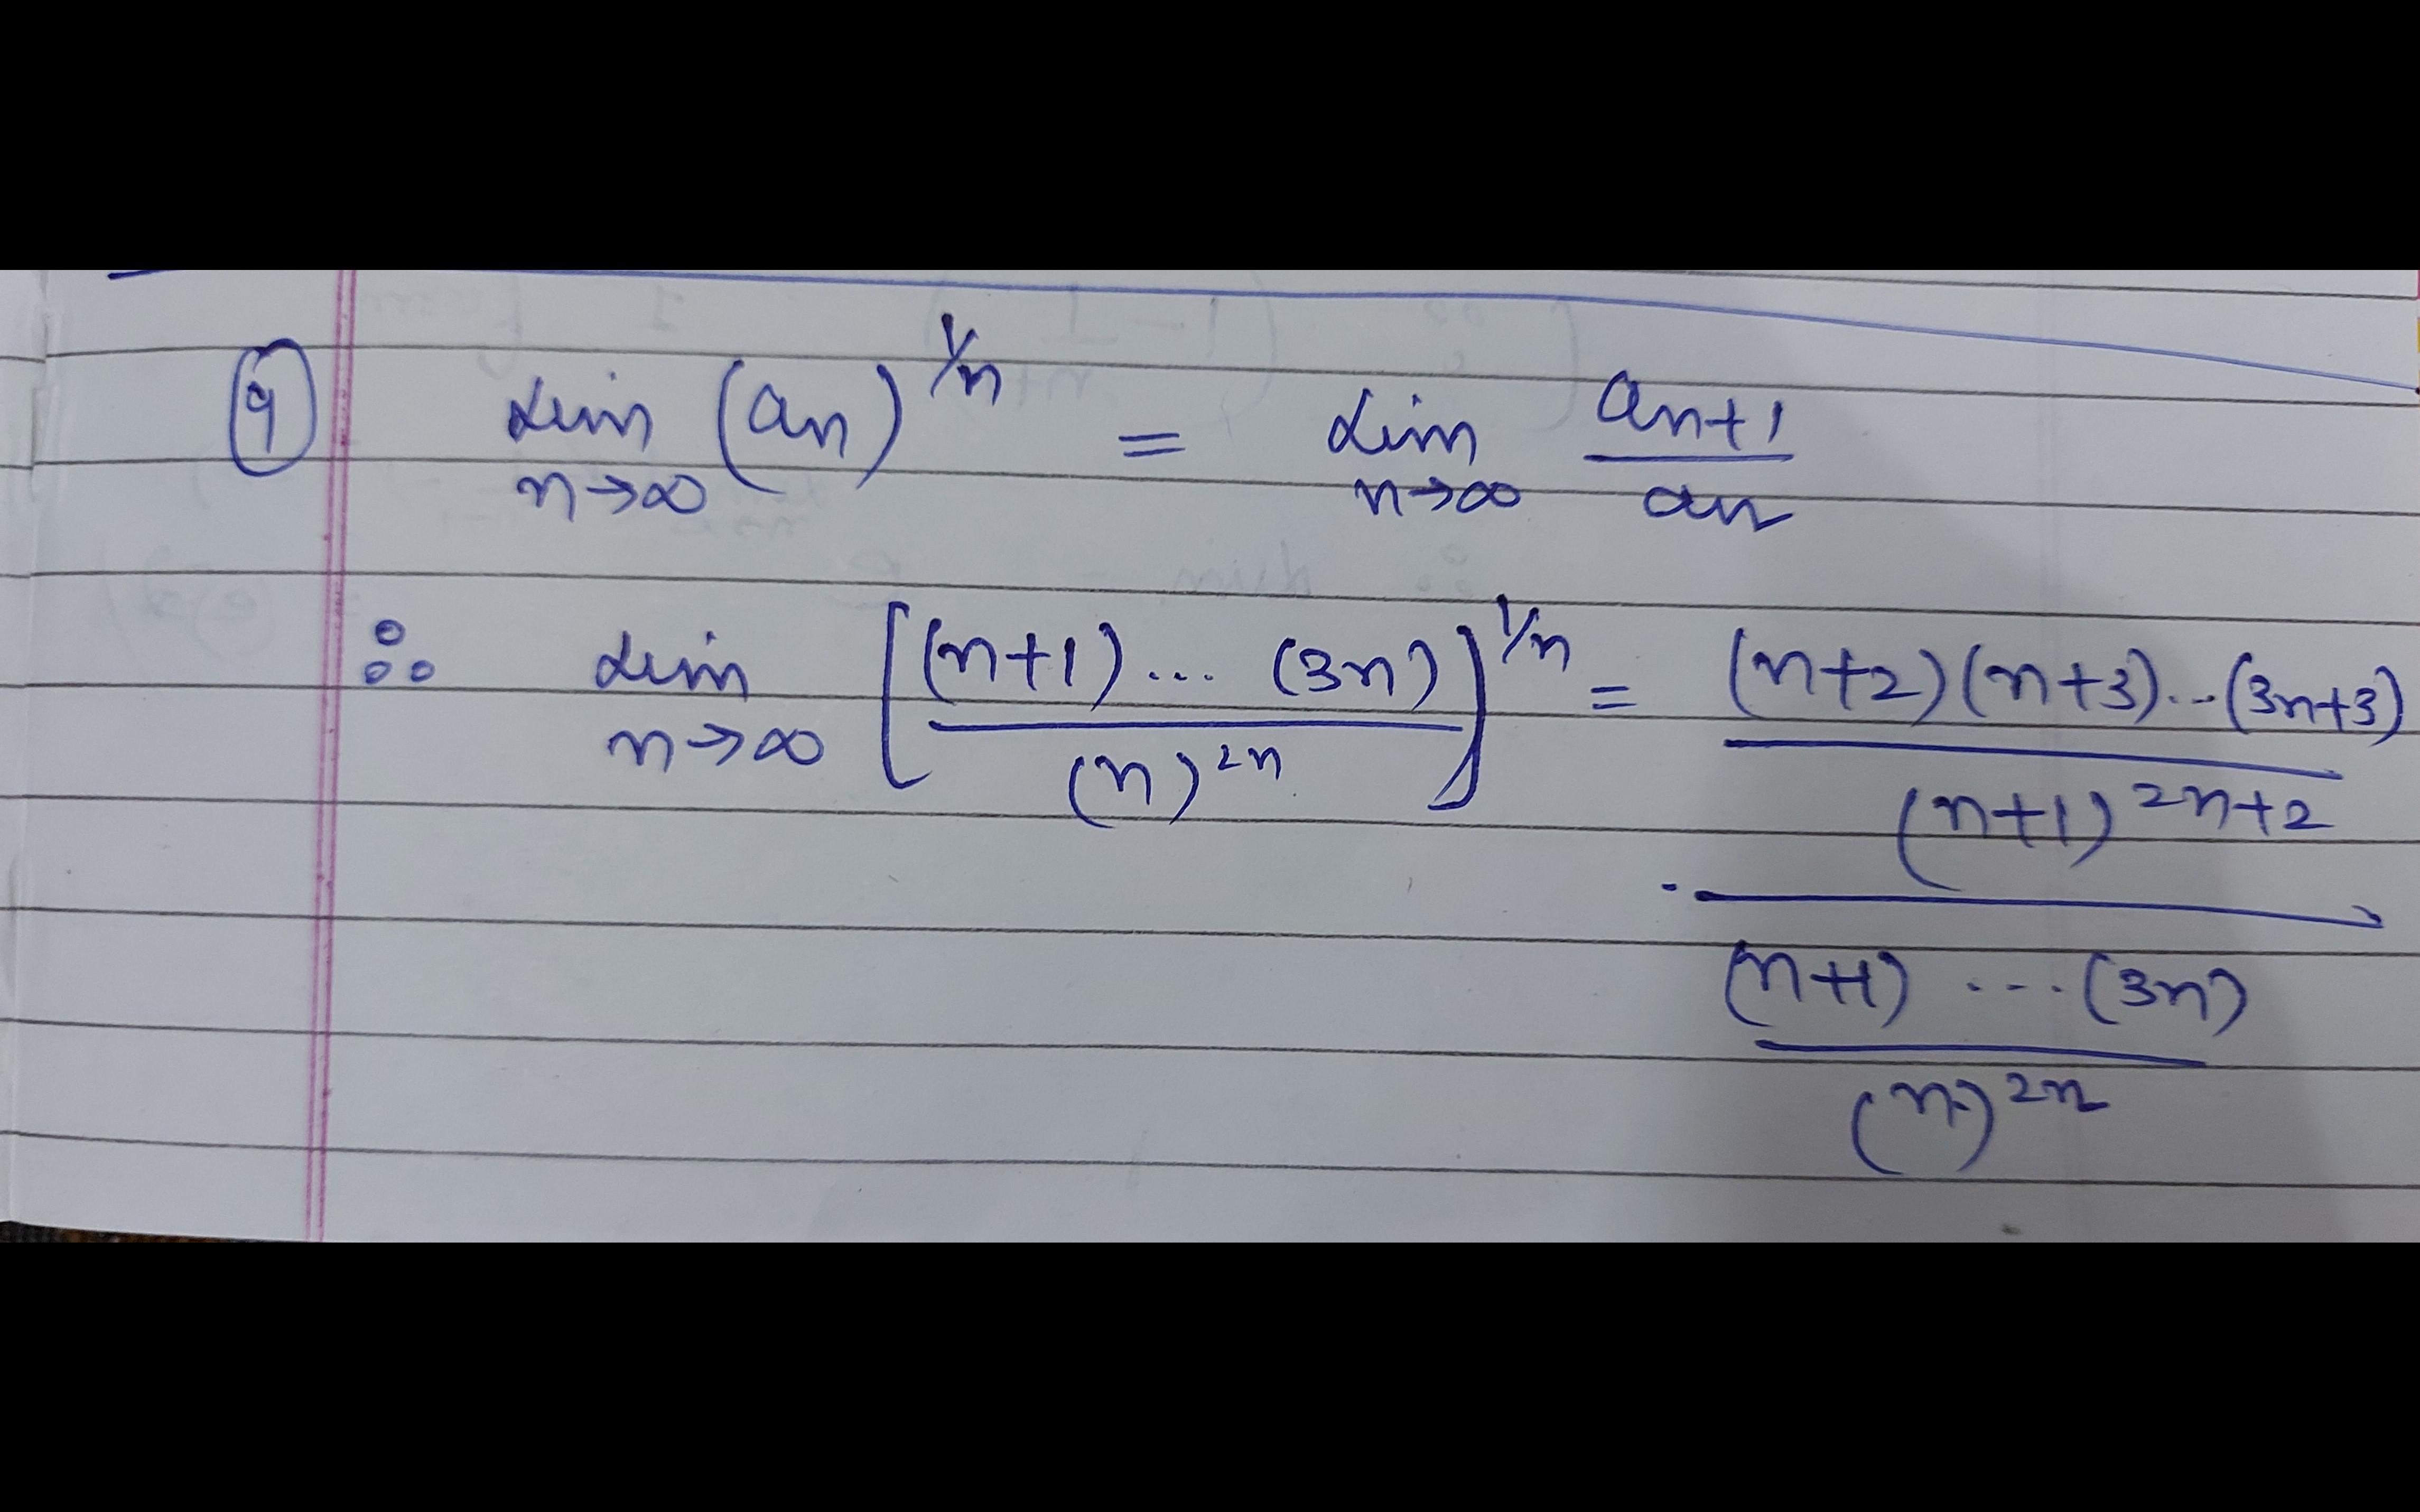 9 lim n→∞ (an)^1/n = lim n→∞ an+1 / an
∴ lim n→∞ [(n+1)... (3n) / (n)^2n]^1/n = (n+2)(n+3)...(3n+3) / (n+1)^2n+2
(n+1) ... (3n) / (n)^2n